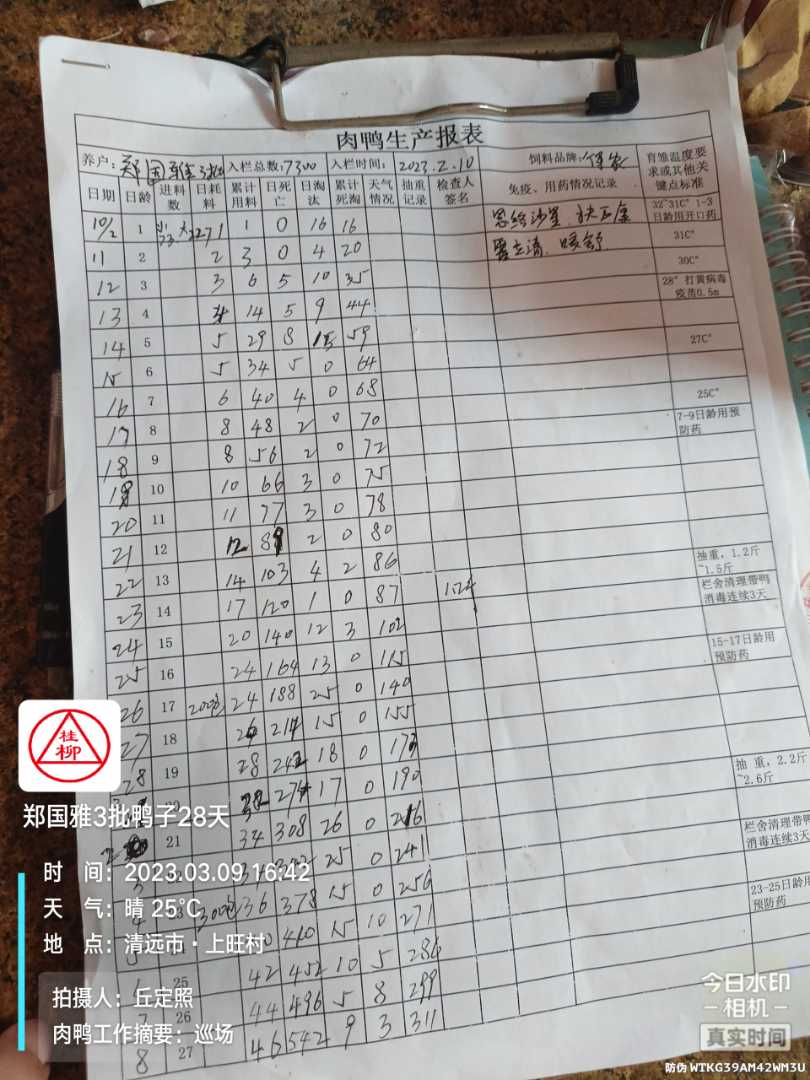 肉鸭生产报表
养户: 郑国雅3批 入栏总数:7300 入栏时间: 2023.2.10 饲料品牌: 育雏温度要求或其他关键点标准
日期 日龄 进料数 日耗料 累计用料 日死亡 日淘汰 累计死淘 天气情况 抽重记录 检查人签名 免疫、用药情况记录
10/2 1 1 1 0 16 16 32~31C° 1-3日龄用开口药
11 2 2 3 0 4 20 31C°
30C°
12 3 3 6 5 10 35 28°打黄病毒疫苗0.5m
13 4 4 14 5 9 44
14 5 5 29 8 15 59 27C°
15 6 5 34 5 0 64
16 7 6 40 4 0 68 25C°
17 8 8 48 2 0 70 7-9日龄用预防药
18 9 8 56 2 0 72
19 10 10 66 3 0 75
20 11 11 77 3 0 78
21 12 12 89 2 0 80
22 13 14 103 4 2 86 抽重,1.2斤~1.5斤
23 14 17 120 1 0 87 栏舍清理带鸭消毒连续3天
24 15 20 140 12 3 102
25 16 24 164 13 0 115 15-17日龄用预防药
26 17 200包 24 188 25 0 140
27 18 26 214 15 0 155
28 19 28 242 18 0 173
20 274 17 0 190 抽重,2.2斤~2.6斤
21 34 308 26 0 216
25 0 241 栏舍清理带鸭消毒连续3天
300包 36 378 15 0 256 23-25日龄用预防药
410 15 10 271
25 42 452 10 5 286
7 26 44 496 5 8 299
8 27 46 542 9 3 311
桂柳
郑国雅3批鸭子28天
时 间: 2023.03.09 16:42
天 气: 晴 25℃
地 点: 清远市·上旺村
拍摄人: 丘定照
肉鸭工作摘要: 巡场
今日水印
相机
真实时间
防伪 WTKG39AM42WM3U